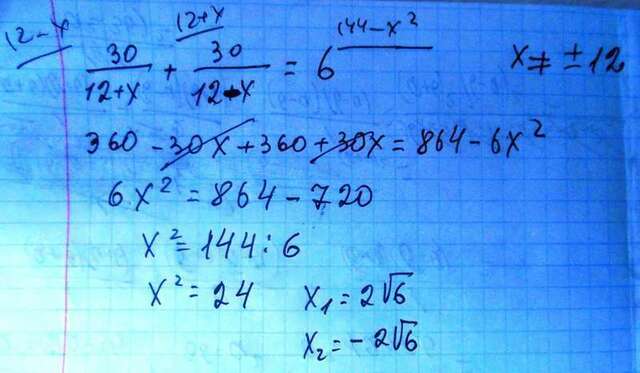 12-x 12+x 144-x²
30/(12+x) + 30/(12-x) = 6 x ≠ ±12
360 - 30x + 360 + 30x = 864 - 6x²
6x² = 864 - 720
x² = 144 : 6
x² = 24 x₁ = 2√6
x₂ = -2√6